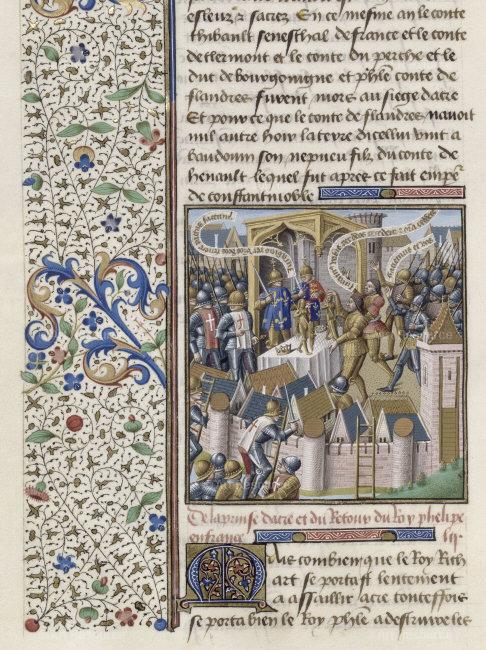 esleuz & sacrez En ce mesme an le conte
thibault seneschal de france et le conte
de clermont et le conte du perche et le
duc de bourgoingne et phle conte de
flandres furent mors au siege dacre
Et pour ce que le conte de flandres navoit
nul autre hoir la terre dicellui vint a
baudouin son nepueu filz du conte de
henault lequel fut apres ce fait empe
de constantinoble
De la prinse dacre et du Retour du Roy phelipe
en france lii
Mais combien que le Roy Rich
art se portast lentement
a assaillir acre touteffois
se porta bien le Roy phle a destruire les